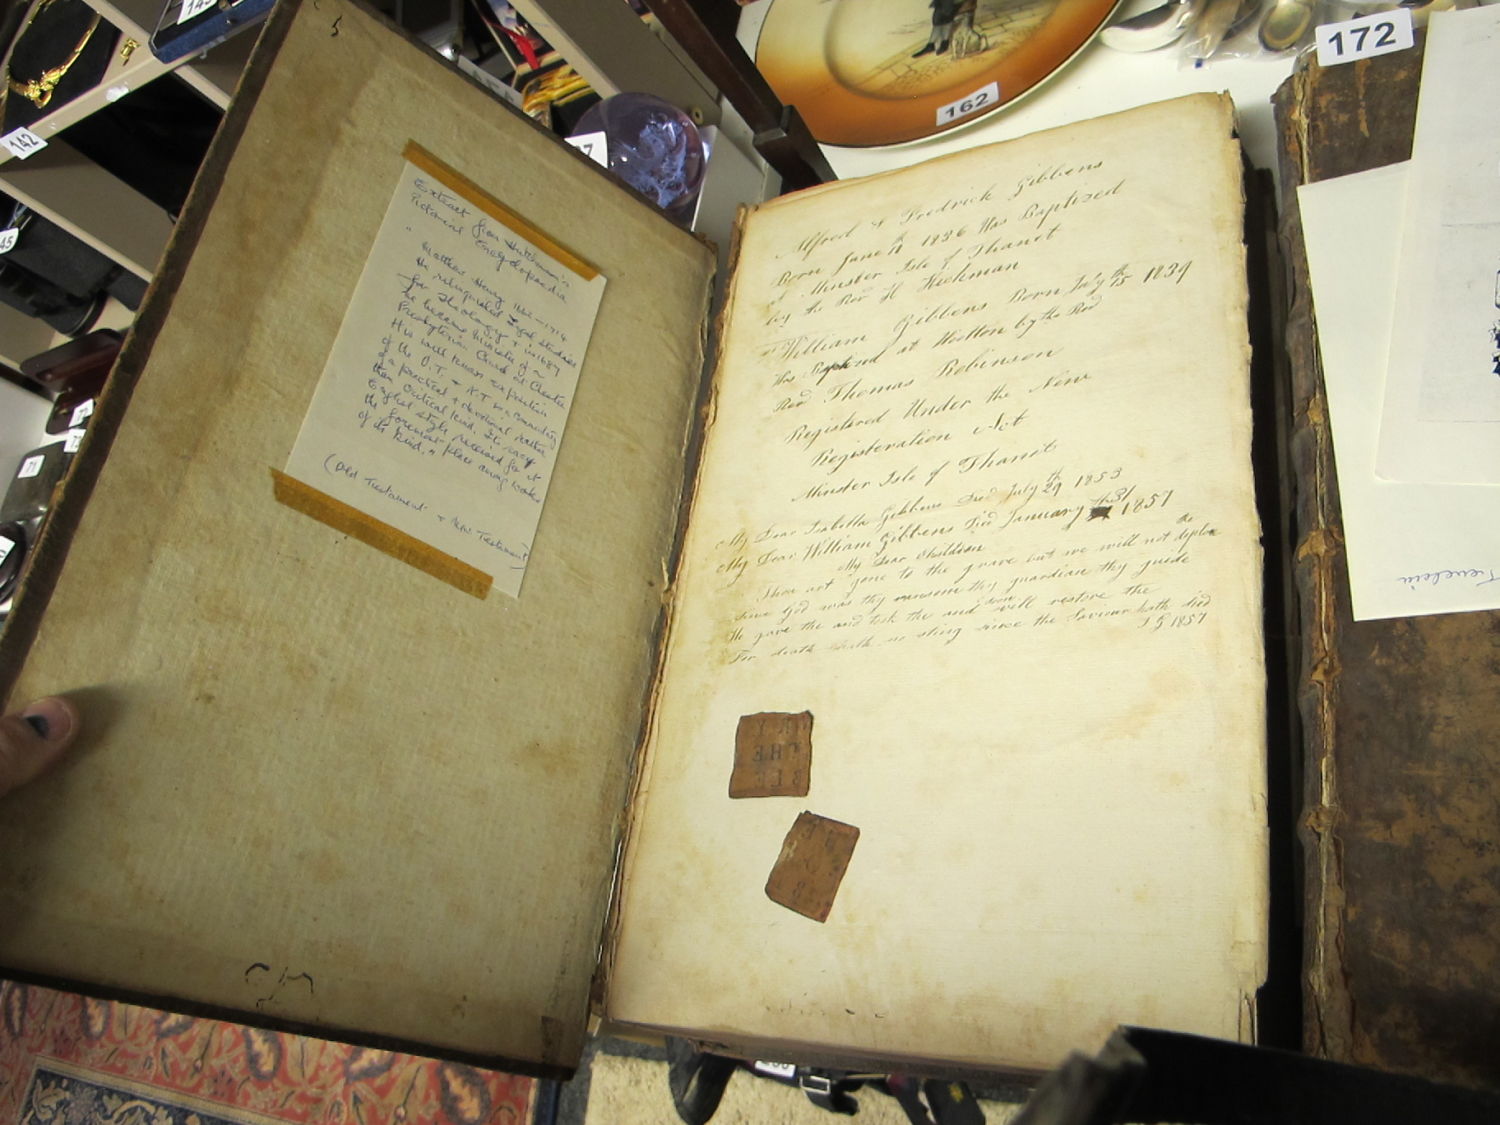 Extract from Hutchinson's
Pictorial Encyclopaedia
" Matthew Henry 1662 – 1714
He relinquished legal studies
for theology & in 1687
he became minister of a
Presbyterian Church at Chester
His well known exposition
of the O.T. & N.T. is a commentary
of a practical & devotional rather
than critical kind. Its racy
English style received for it
the foremost place among works
of its kind. "
(Old Testament & New Testament)
Alfred & Fredrick Gibbens
Born June 1836 Was Baptized
at Minster Isle of Thanet
by the Rev H Hickman
William Gibbens Born July th 15 1839
Was Baptized at Wootton by the Rev
Revd Thomas Robinson
Registered Under the New
Registeration Act
Minster Isle of Thanet
My Dear Isabella Gibbens Died July th 29 1853
My Dear William Gibbens Died January 31 1857
My Dear Children
Thou art gone to the grave but we will not deplore the
since God was thy ransom thy guardian thy guide
He gave the and took the and soon will restore the
For death hath no sting since the Saviour hath died
J G 1857
THE
142
145
71
162
172